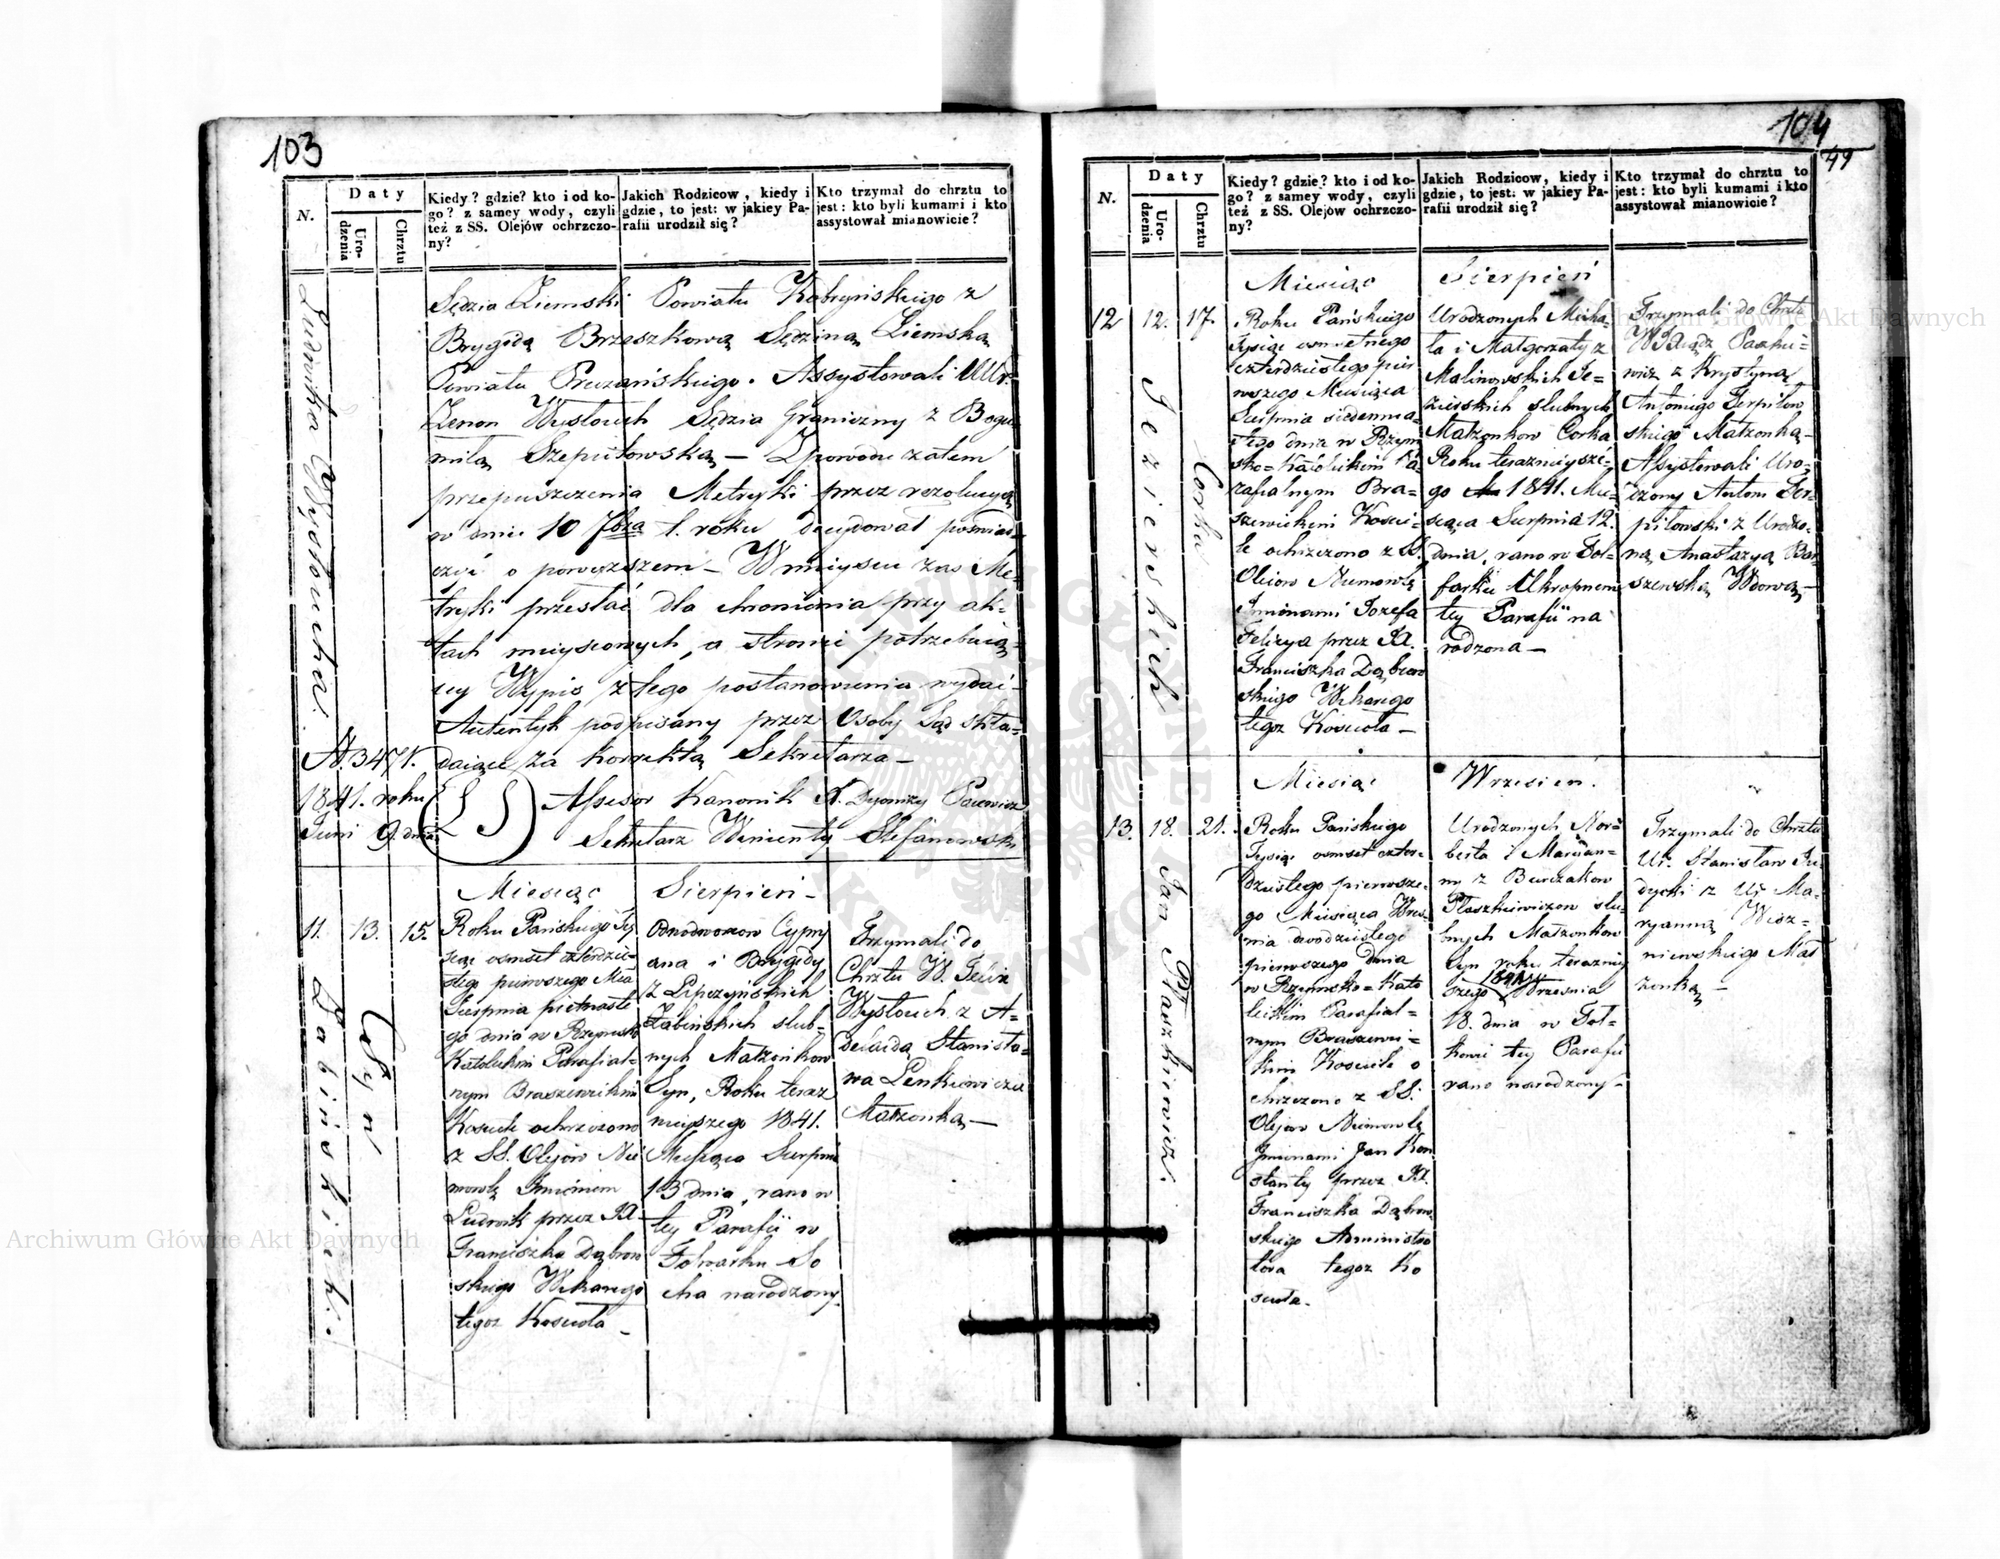 103
N.
Daty
Urodzenia
Chrztu
Kiedy? gdzie? kto i od ko-
go? z samey wody, czyli
też z SS. Olejów ochrzczo-
ny?
Jakich Rodzicow, kiedy i
gdzie, to jest: w jakiey Pa-
rafii urodził się?
Kto trzymał do chrztu to
jest: kto byli kumami i kto
assystował mianowicie?
Ludwika Wysłoucha.
Sędzia Ziemski Powiatu Kobryńskiego z
Brygidą Brzeszkową Sędziną Ziemską
Powiatu Pruzańskiego. Assystowali UUr.
Zenon Wysłouch Sędzia Graniczny z Bogu-
miłą Szepiutowską — Z powodu zatem
przepuszczenia Metryki przez rezolucyą
w dniu 10 7bra t. roku decydował poświad-
czyć o powyższem — W mieyscu zas Me-
tryki przesłać dla chronienia przy ak-
tach mieyscowych, a stronie potrzebuią-
cey Wypis z tego postanowienia wydać —
Autentyk podpisany przez Osoby Sąd skła-
daiące za korrektą Sekretarza —
N. 3471.
1841. roku
Juni 9. dnia
(L S) Assesor Kanonik X. Dyonizy Paiewicz
Sekretarz Wincenty Stefanowski
Miesiąc Sierpień —
11. 13. 15.
Łabińskich.
Syn
Roku Pańskiego Ty-
siąc osmset czterdzie-
stego pierwszego Mca
Sierpnia piętnaste
go dnia w Rzymsko
Katolickim Parafial-
nym Braszewickim
Kosciele ochrzczono
z SS. Olejow Nie
mowlę Imieniem
Ludwik przez X.
Franciszka Dąbrow
skiego Wikarego
tegoz Kosciola —
Odnodworcow Cypry
ana i Brygidy
z Lipczyńskich
Łabińskich slub-
nych Małżonkow
Syn, Roku teraz
nieyszego 1841.
Miesiąca Sierpnia
13 dnia, rano w
tey Parafii w
Folwarku So
cha narodzony.
Trzymali do
Chrztu W. Felix
Wysłouch z A-
delaidą Stanisła-
wa Lenkiewicza
Małżonką —
104
49
N.
Daty
Urodzenia
Chrztu
Kiedy? gdzie? kto i od ko-
go? z samey wody, czyli
też z SS. Olejów ochrzczo-
ny?
Jakich Rodzicow, kiedy i
gdzie, to jest: w jakiey Pa-
rafii urodził się?
Kto trzymał do chrztu to
jest: kto byli kumami i kto
assystował mianowicie?
Miesiąc Sierpień
12 12. 17.
Jezierskich
Corka
Roku Pańskiego
Tysiąc osmsetnego
czterdziestego pier
wszego Miesiąca
Sierpnia siedemna-
stego dnia w Rzym
sko-Katolickim Pa-
rafialnym Bra-
szewickim Kosci-
ele ochrzczono z SS.
Olejow Niemowlę
Imionami Jozefa
Felixya przez X.
Franciszka Dąbrow
skiego Wikarego
tegoz Kosciola —
Urodzonych Micha-
ła i Małgorzaty z
Malinowskich Je-
zierskich slubnych
Małżonkow Corka
Roku teraznieysze-
go 1841. Mie-
siąca Sierpnia 12.
dnia, rano w Fol-
farku Ukropnem
tey Parafii na
rodzona —
Trzymali do Chrztu
Paszke-
wicz z Krystyną
Antoniego Terpiłow
skiego Małżonką —
Assystowali Uro-
dzony Antoni Ter-
piłowski z Urodzo-
ną Anastazyą Bar
szewską Wdową —
Miesiąc Wrzesien.
13. 18. 21.
Jan Płaszkiewicz.
Roku Pańskiego
Tysiąc osmset czter-
dziestego pierwsze-
go Miesiąca Wrzes-
nia dwodziestego
pierwszego dnia
w Rzymsko-Kato
lickim Parafial-
nym Braszewic-
kim Kosciele o
chrzczono z SS.
Olejow Niemowlę
Imionami Jan Kon
stanty przez X.
Franciszka Dąbrow
skiego Administra
tora tegoz Ko
sciola.
Urodzonych Nor-
berta i Maryan-
ny z Burzakow
Płaszkiewiczow slu-
bnych Małżonkow
Syn roku terazniey
szego 1841 Wrzesnia
18. dnia w Fol-
tey Parafii
rano narodzony —
Trzymali do Chrztu
Ur. Stanisław Ju-
dycki z Ur. Ma-
ryanną Wisz-
niewskiego Mał
żonką —
Archiwum Główne Akt Dawnych
Archiwum Główne Akt Dawnych